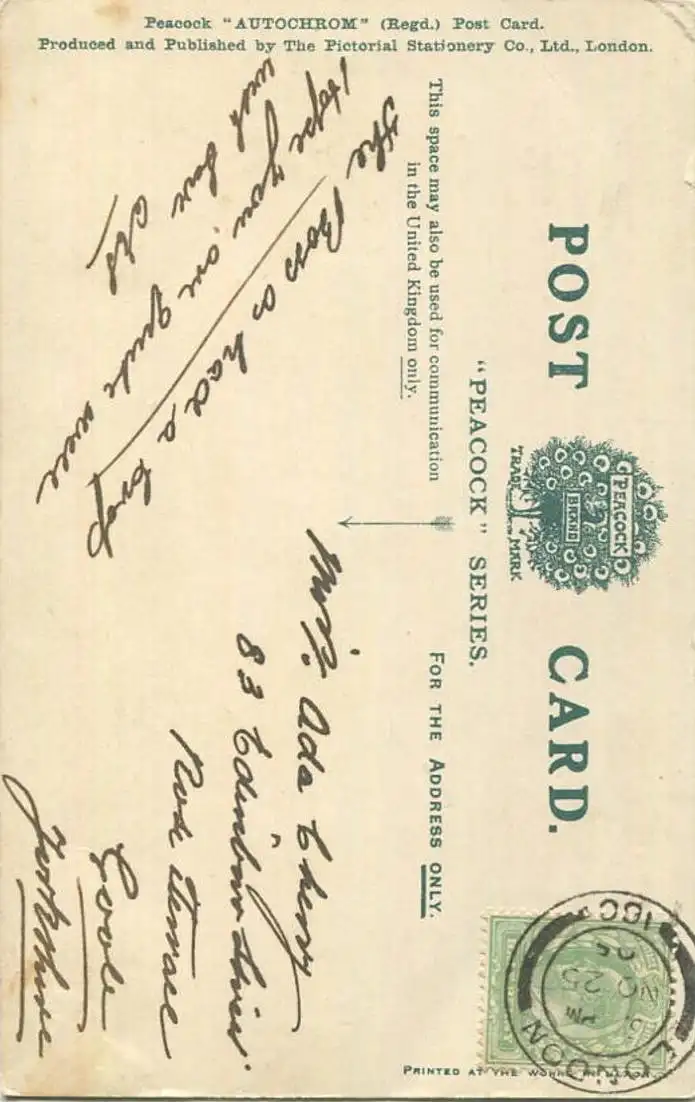 Peacock "AUTOCHROM" (Regd.) Post Card.
Produced and Published by The Pictorial Stationery Co., Ltd., London.
POST CARD.
PEACOCK
BRAND
TRADE MARK
"PEACOCK" SERIES.
This space may also be used for communication
in the United Kingdom only.
FOR THE ADDRESS ONLY.
The Boss as had a
Hope you are quite well
with love
Miss. Ada Cherry
83 Edinburo Street
Rose Terrace
Goole
Yorkshire
LONDON
NO 25
PRINTED AT THE WORKS IN